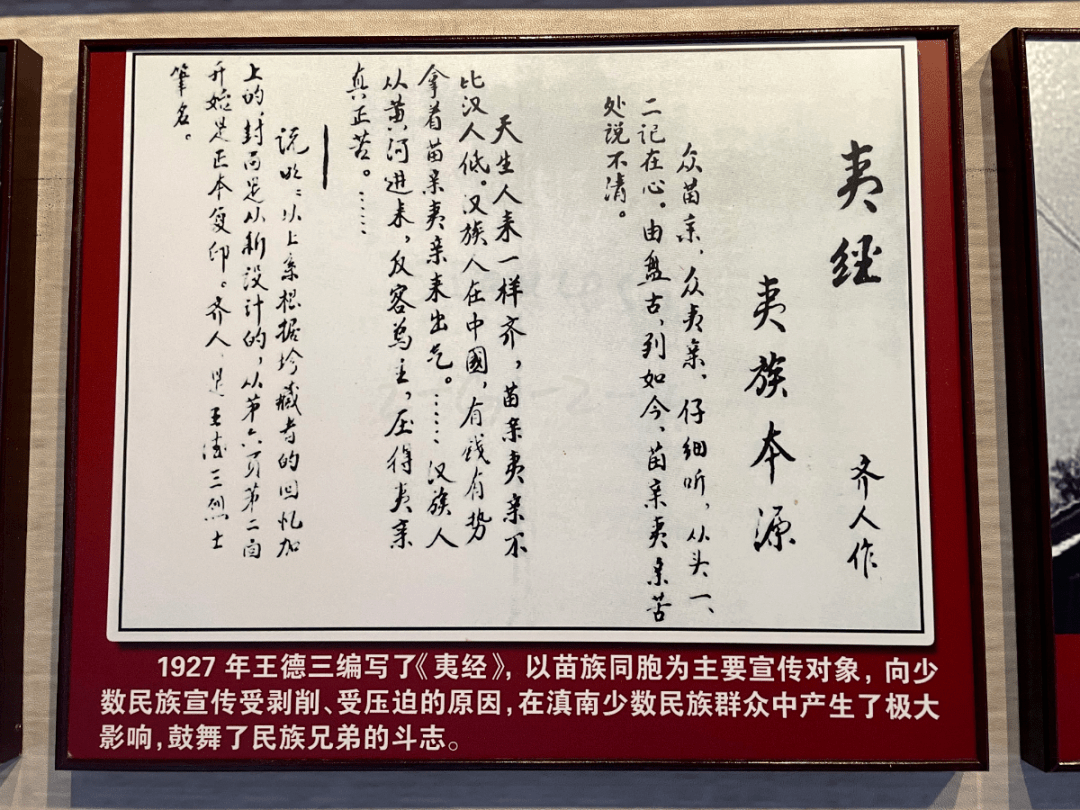 夷经
齐人作
夷族本源
众苗亲，众夷亲，仔细听，从头一、
二记在心。由盘古，到如今，苗亲夷亲苦
处说不清。
天生人来一样齐，苗亲夷亲不
比汉人低。汉族人在中國，有钱有势
拿着苗亲夷亲来出气。……汉族人
从黄河进来，反客为主，压得夷亲
真正苦。……
说明：以上系根据珍藏者的回忆加
上的，封面是从新设计的，从第六页第二面
开始是正本复印。齐人是王德三烈士
筆名。
1927年王德三编写了《夷经》，以苗族同胞为主要宣传对象，向少
数民族宣传受剥削、受压迫的原因，在滇南少数民族群众中产生了极大
影响，鼓舞了民族兄弟的斗志。